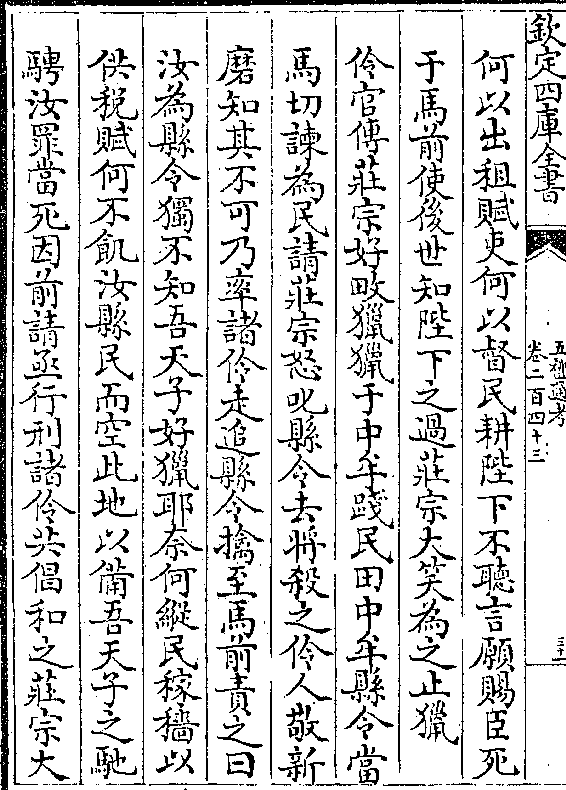 欽定四庫全書
五禮通考
卷二百四十三
三十一
何以出租賦吏何以督民耕陛下不聽言願賜臣死
于馬前使後世知陛下之過莊宗大笑為之止獵
伶官傳莊宗好畋獵獵于中牟踐民田中牟縣令當
馬切諫為民請莊宗怒叱縣令去將殺之伶人敬新
磨知其不可乃率諸伶走追縣令擒至馬前責之曰
汝為縣令獨不知吾天子好獵耶奈何縱民稼穡以
供税賦何不飢汝縣民而空此地以備吾天子之馳
騁汝罪當死因前請亟行刑諸伶共倡和之莊宗大